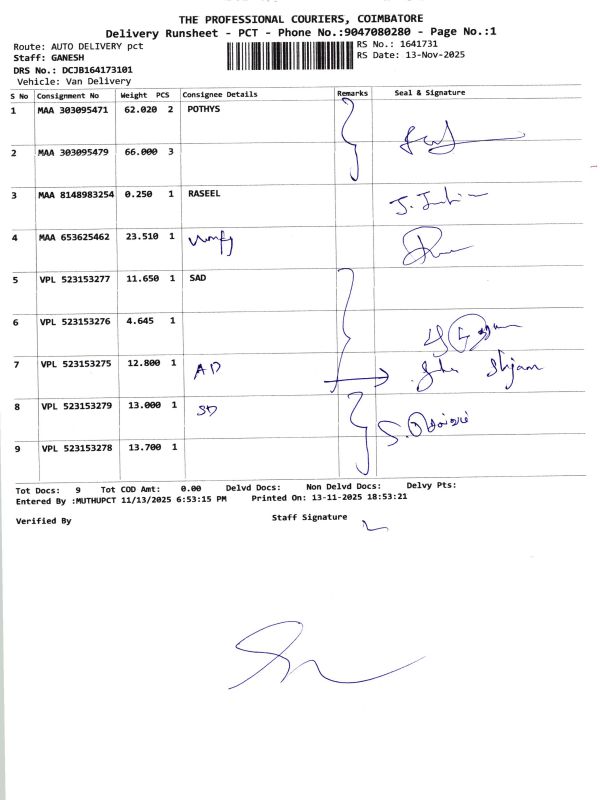 THE PROFESSIONAL COURIERS, COIMBATORE
Delivery Runsheet - PCT - Phone No.:9047080280 - Page No.:1
Route: AUTO DELIVERY pct RS No.: 1641731
Staff: GANESH RS Date: 13-Nov-2025
DRS No.: DCJB164173101
Vehicle: Van Delivery
S No Consignment No Weight PCS Consignee Details Remarks Seal & Signature
1 MAA 303095471 62.020 2 POTHYS
2 MAA 303095479 66.000 3
3 MAA 8148983254 0.250 1 RASEEL
4 MAA 653625462 23.510 1
5 VPL 523153277 11.650 1 SAD
6 VPL 523153276 4.645 1
7 VPL 523153275 12.800 1 AD
8 VPL 523153279 13.000 1 SD
9 VPL 523153278 13.700 1
Tot Docs: 9 Tot COD Amt: 0.00 Delvd Docs: Non Delvd Docs: Delvy Pts:
Entered By :MUTHUPCT 11/13/2025 6:53:15 PM Printed On: 13-11-2025 18:53:21
Verified By Staff Signature